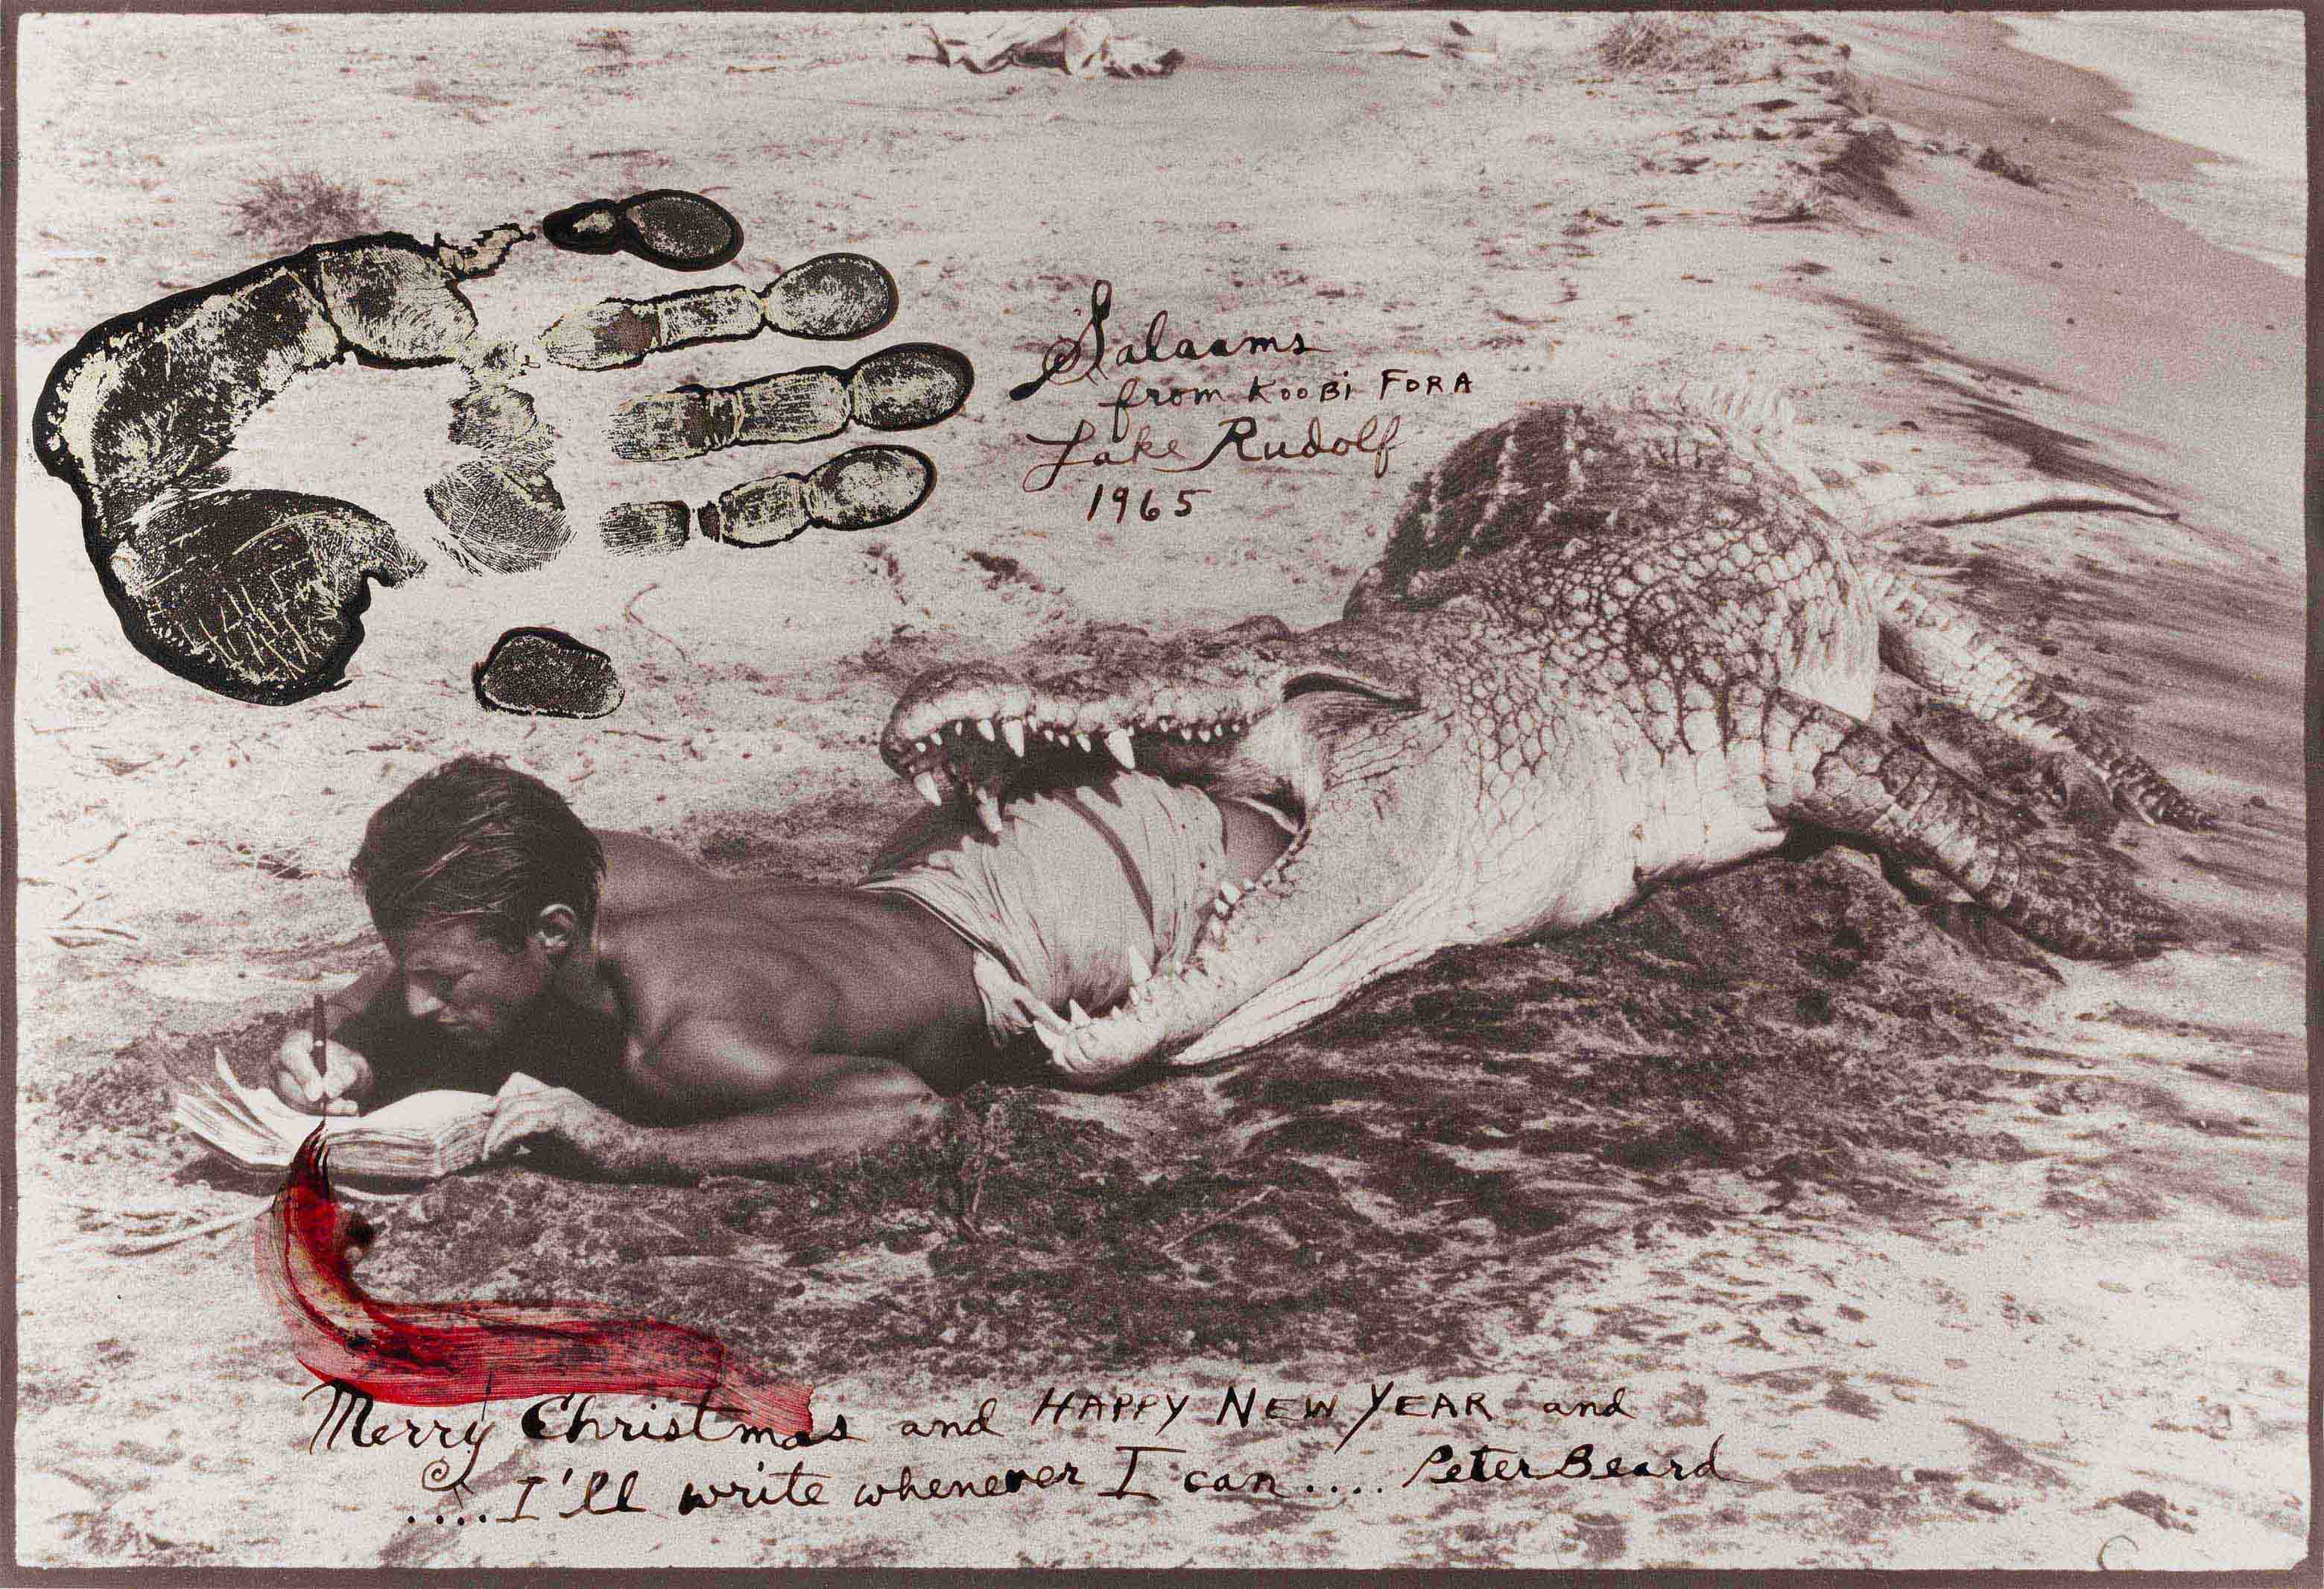 Salaams
from KOOBi FORA
Lake Rudolf
1965
Merry Christmas and HAPPY NEW YEAR and
....I'll write whenever I can.... Peter Beard